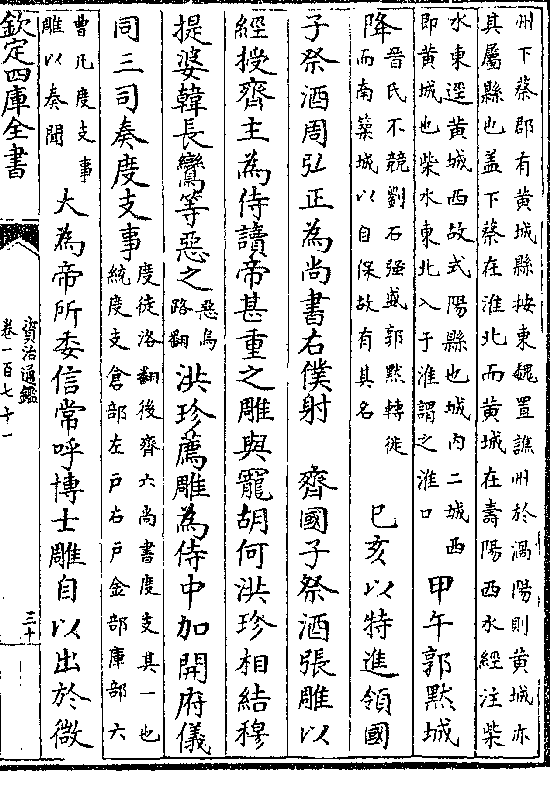 州下蔡郡有黄城縣按東魏置譙州於渦陽則黄城亦
其屬縣也盖下蔡在淮北而黄城在壽陽西水經注柴
水東選黄城西故式陽縣也城内二城西
即黄城也柴水東北入于淮謂之淮口
甲午郭黙城
降
晉氏不競劉石强盛郭黙轉徙
而南築城以自保故有其名
己亥以特進領國
子祭酒周弘正為尚書右僕射　齊國子祭酒張雕以
經授齊主為侍讀帝甚重之雕與寵胡何洪珍相結穆
提婆韓長鸞等惡之
惡烏
路翻
洪珍薦雕為侍中加開府儀
同三司奏度支事
度徒洛翻後齊六尚書度支其一也
統度支倉部左戸右戸金部庫部六
曹凡度支事
雕以奏聞
大為帝所委信常呼博士雕自以出於微
欽定四庫全書
資治通鑑
卷一百七十一
三十